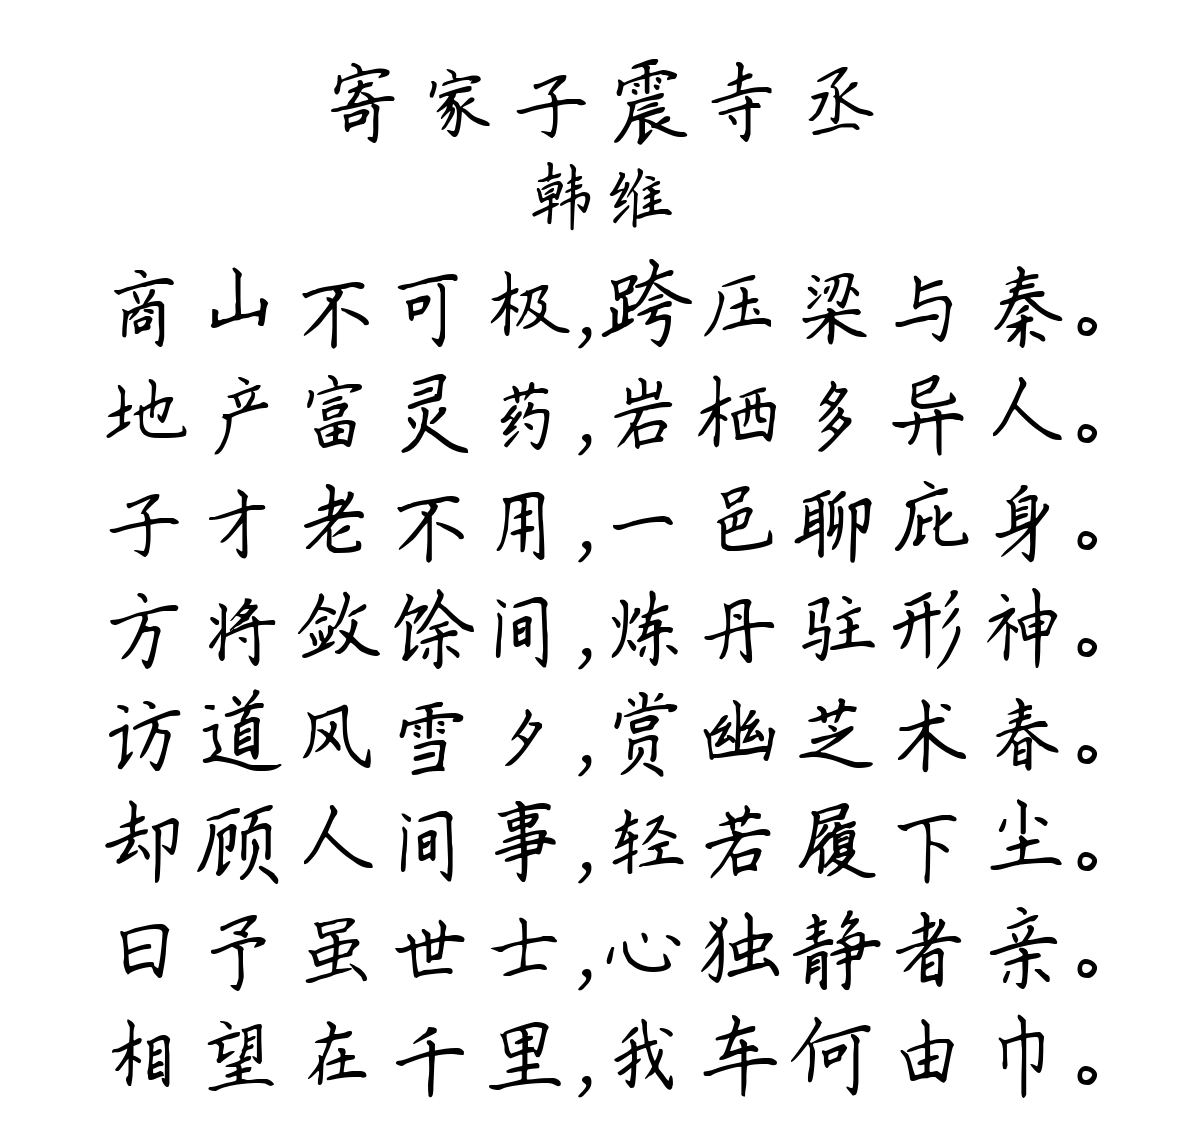 寄家子震寺丞
韩维
商山不可极,跨压梁与秦。
地产富灵药,岩栖多异人。
子才老不用,一邑聊庇身。
方将敛馀间,炼丹驻形神。
访道风雪夕,赏幽芝术春。
却顾人间事,轻若履下尘。
曰予虽世士,心独静者亲。
相望在千里,我车何由巾。